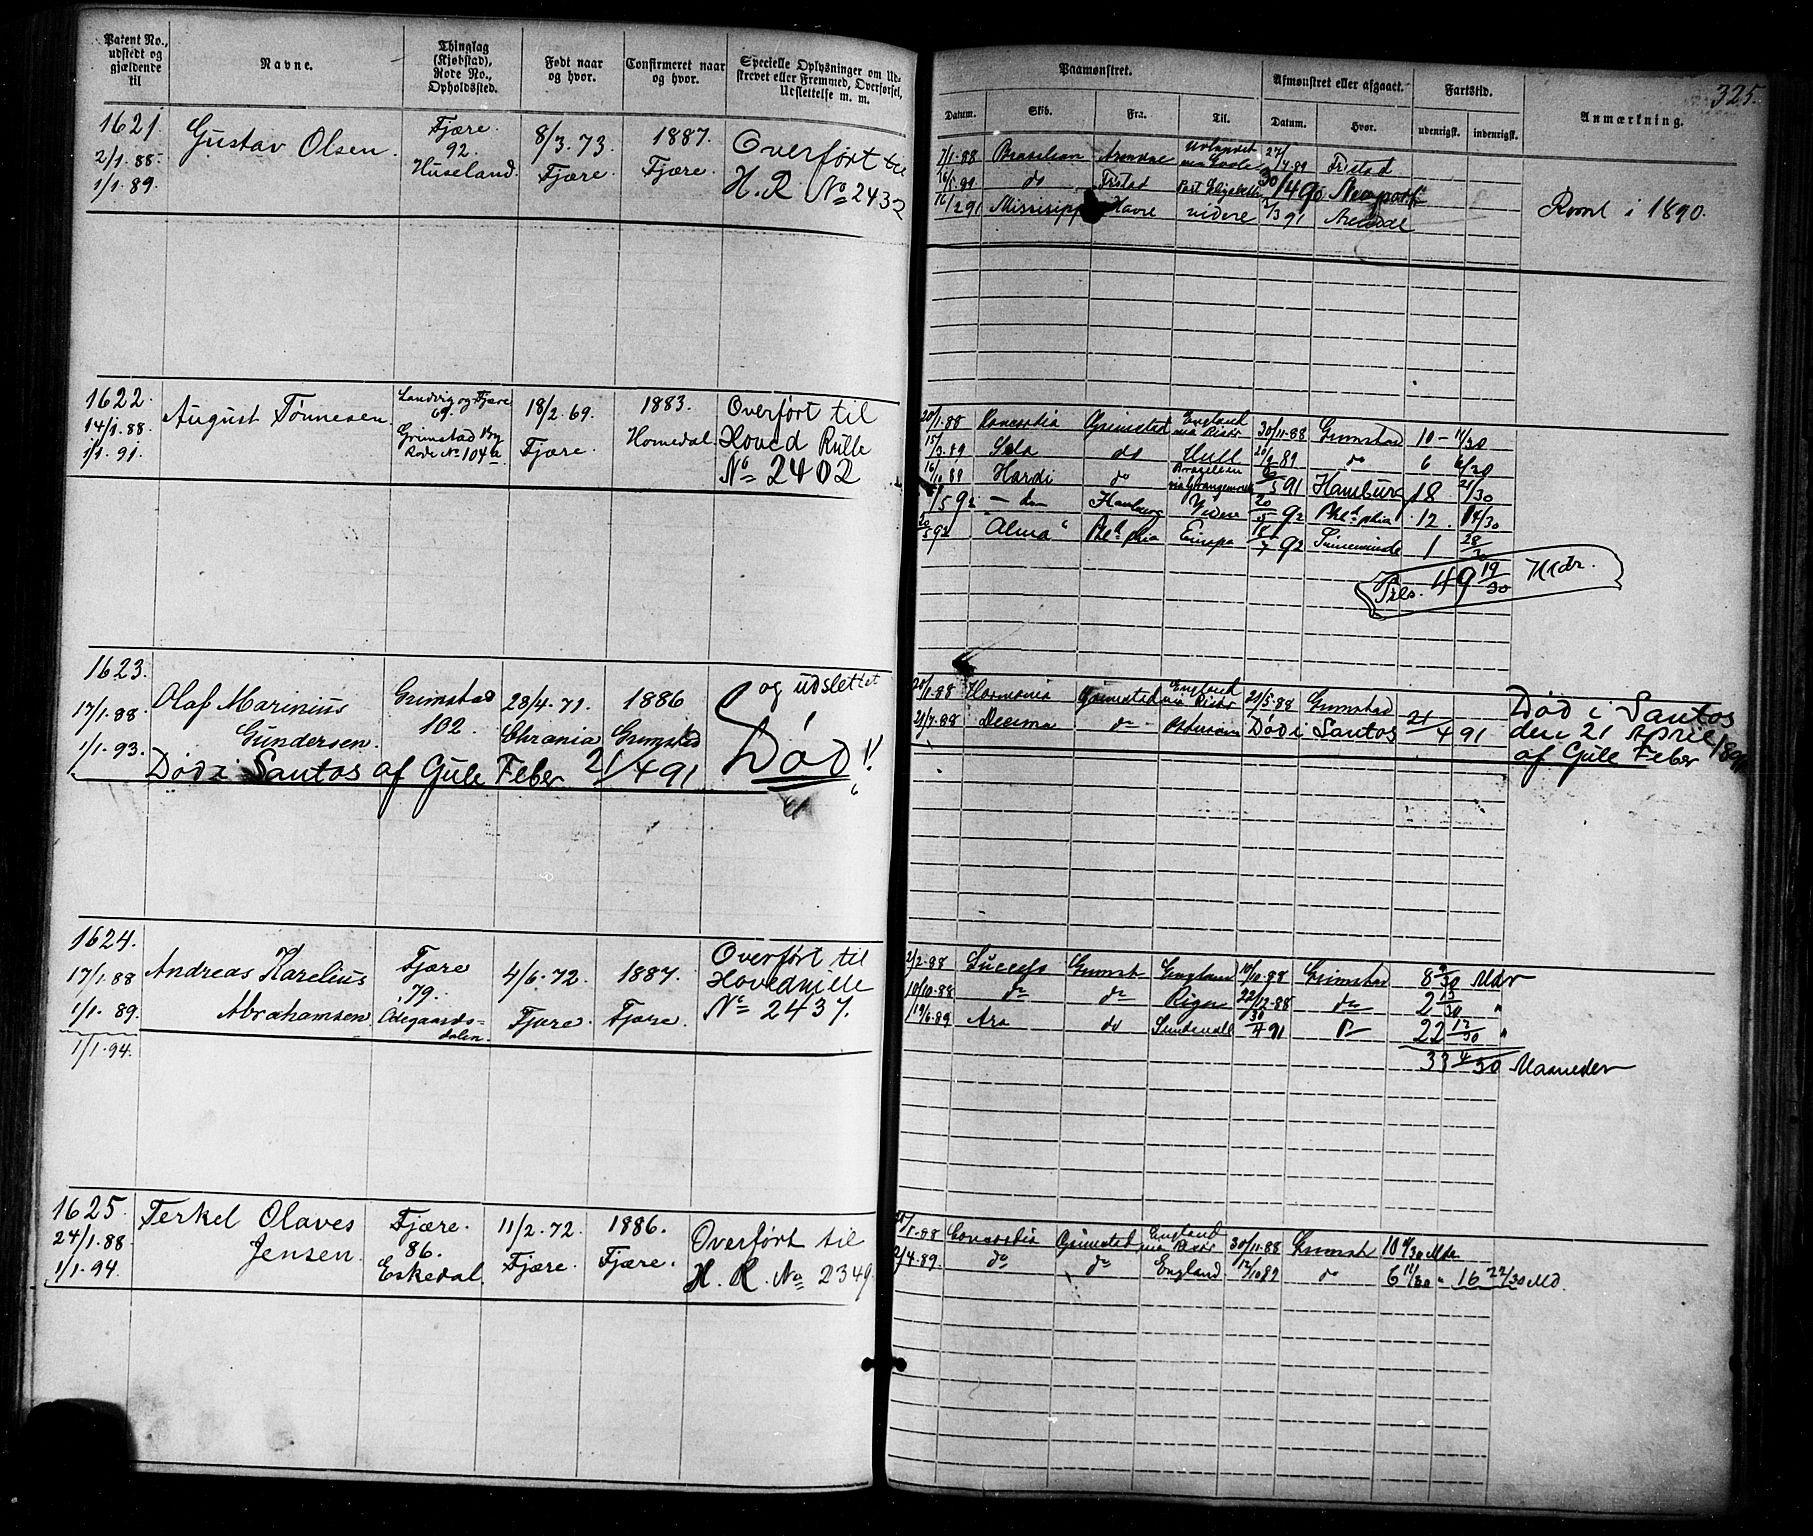 Patent No., udstedt og gjældende til
Navne.
Thinglag (Kjøbstad), Rode No., Opholdssted.
Født naar og hvor.
Confirmeret naar og hvor.
Specielle Oplysninger om Udskrevet eller Fremmed, Overførsel, Udslettelse m. m.
Paamønstret.
Afmønstret eller afgaaet.
Fartstid.
Anmærkning.
325.
Datum.
Skib.
Fra.
Til.
Datum.
Hvor.
udenrigsk.
indenrigsk.
1621.
2/1.88.
1/1.89.
Gustav Olsen.
Fjære.
92.
Huseland.
8/3.73.
Fjære.
1887.
Fjære.
Overført til
H. R. No 2432
7/1.88 Brasilian Arendal Udlandet 27/4.89 Fristad
do Fristad Port Elizabeth 30/4 90 Newport
16/2 91 Mississippi Havre videre /3 91 Arendal
Romt i 1890.
1622.
14/1.88.
1/1.91.
August Tønnesen
Landvig og Fjære
69.
Grimstad By
Rode No 104a
18/2.69.
Fjære.
1883.
Homedal.
Overført til
Hoved Rulle
No 2402
20/1.88 Concordia Grimstad England via Risør 30/11.88 Grimstad 10 - 11/30
15/3.89 Sela do Hull 20/ 89 do 6 6/30
16/10 89 Hardi do 6/5 91 Hamburg 18 21/30
/5 92 - do - Hamburg Videre 20/5 92 Phldphia 12. 14/30
20/5 92 Alma Phldphia Europa 18/7 92 1 28/30
Tils. 49 19/30 Mdr.
1623.
17/1.88.
1/1.93.
Olaf Marinius
Gundersen.
Grimstad
102.
28/4.71.
Chrania
1886
Grimstad
og udslettet
Død!!
Død i Santos af Gule Feber 21/4 91
20/1.88 Harmonia Grimstad England via Risør 21/5.88 Grimstad
21/7.88 Decima do Død i Santos 21/4 91
Død i Santos
den 21 April 1891
af Gule Feber
1624.
17/1.88
1/1. 89.
1/1.94.
Andreas Karelius
Abrahamsen
Fjære
79.
Ødegaards-
dalen.
4/6.72.
Fjære.
1887.
Fjære.
Overført til
Hovedrulle
No 2437.
2/2.88 Success Grimst England 10/10.88 Grimstad 8 9/30 Mdr
10/10.88 do do Riga 22/12.88 do 2 13/30 "
19/6.89 Ara do Sundsvall 30/4 91 do 22 12/30 "
33 4/30 Maaneder
1625.
24/1.88
1/1.94.
Terkel Olaves
Jensen.
Fjære.
86.
Eskedal.
11/2.72.
Fjære.
1886.
Fjære.
Overført til
H. R. No 2349.
/1.88 Concordia Grimstad England via Risør 30/11.88 Grimst 10 /30 Mdr
2/4.89. do do England. 12/10 89 do 6 11/30 " 16 22/30 Md.